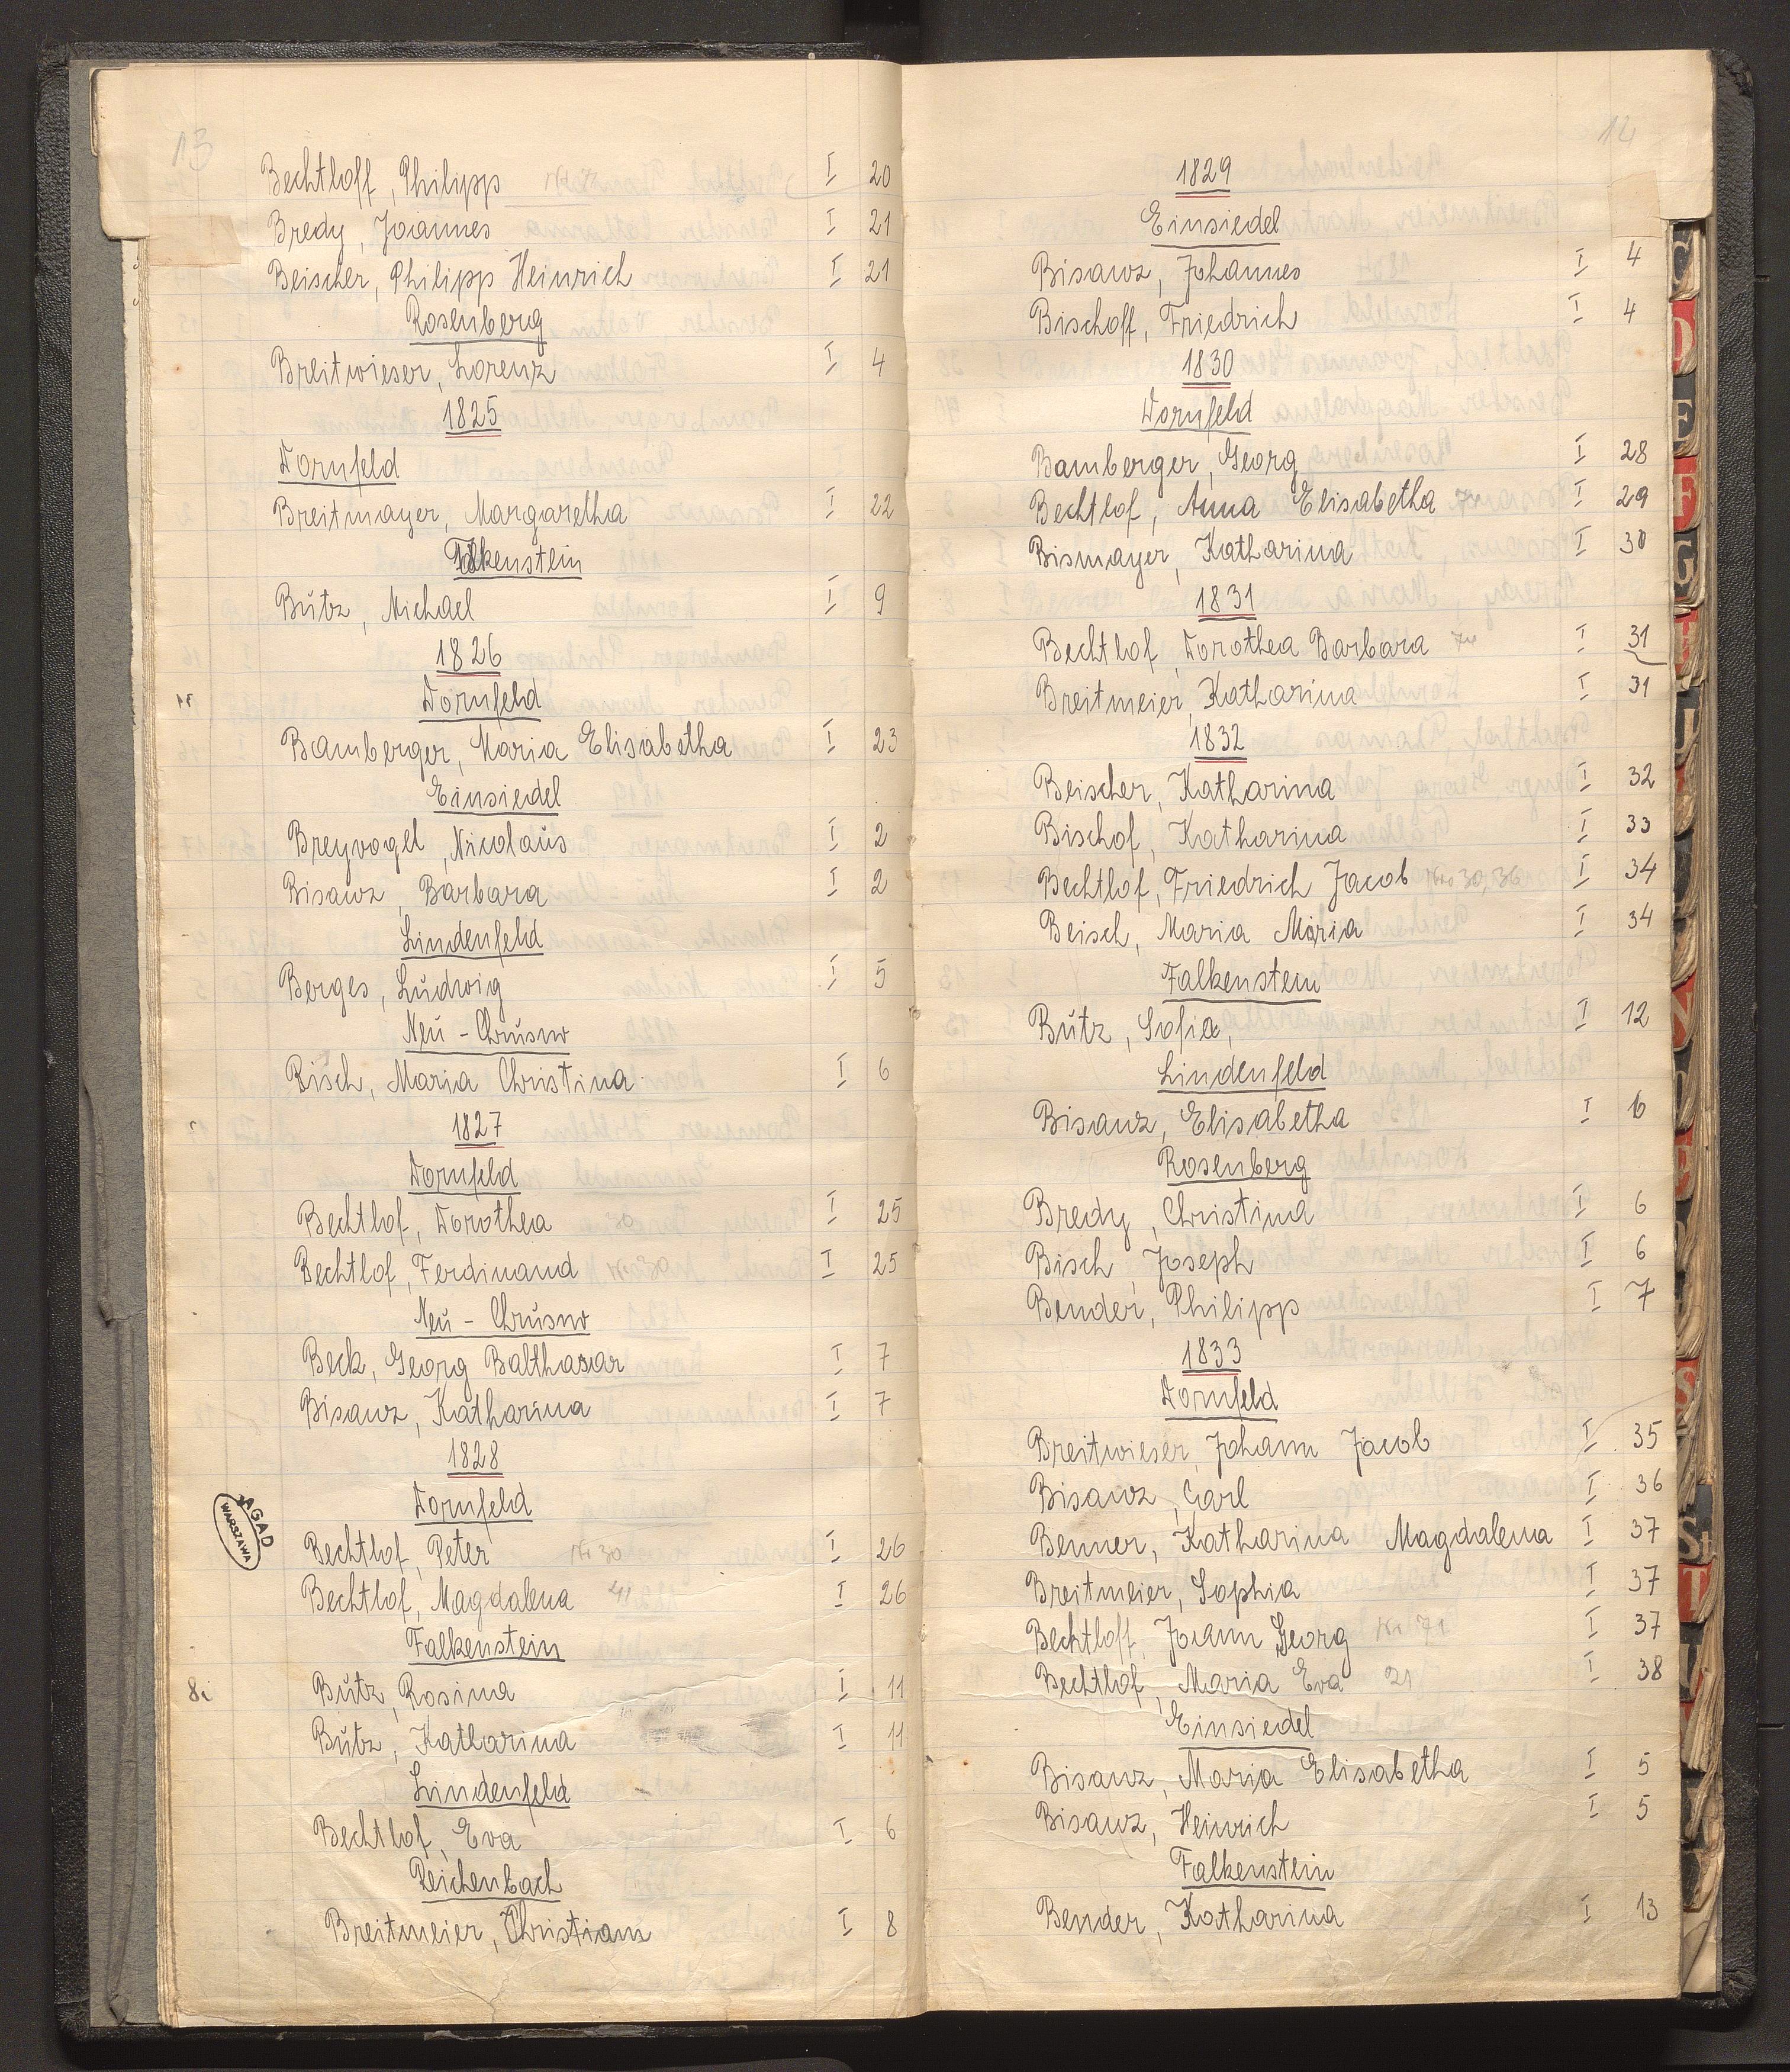 13
Bechtloff, Philipp I 20
Bredy, Joiannes I 21
Beischer, Philipp Heinrich I 21
Rosenberg
Breitwieser, Lorenz I 4
1825
Dornfeld
Breitmayer, Margaretha I 22
Falkenstein
Bŭtz, Michael I 9
1826
Dornfeld
Bamberger, Maria Elisabetha I 23
Einsiedel
Breyvogel, Nicolaŭs I 2
Bisanz, Barbara I 2
Lindenfeld
Berges, Lŭdwig I 5
Neŭ - Chrŭsno
Bisch, Maria Christina I 6
1827
Dornfeld
Bechtlof, Dorothea 30 I 25
Bechtlof, Ferdinand Nr 30 I 25
Neŭ - Chrŭsno
Beck, Georg Balthasar I 7
Bisanz, Katharina I 7
1828
Dornfeld
AGAD
WARSZAWA
Bechtlof, Peter Nr 30 I 26
Bechtlof, Magdalena 41 I 26
Falkenstein
Bŭtz, Rosina I 11
Bŭtz, Katharina I 11
Lindenfeld
Bechtlof, Eva I 6
Reichenbach
Breitmeier, Christian I 8
14
1829
Einsiedel
Bisanz, Johannes I 4
Bischoff, Friedrich I 4
1830
Dornfeld
Bamberger, Georg I 28
Bechtlof, Anna Elisabetha I 29
Bismayer, Katharina I 30
1831
Bechtlof, Dorothea Barbara I 31
Breitmeier, Katharina I 31
1832
Beischer, Katharina I 32
Bischof, Katharina I 33
Bechtlof, Friedrich Jacob Nr 30,36 I 34
Beisch, Maria Maria I 34
Falkenstein
Bŭtz, Sofia, I 12
Lindenfeld
Bisanz, Elisabetha I 6
Rosenberg
Bredy, Christina I 6
Bisch, Joseph I 6
Bender, Philipp I 7
1833
Dornfeld
Breitwieser, Johann Jacob I 35
Bisanz, Carl I 36
Benner, Katharina Magdalena I 37
Breitmeier, Sophia I 37
Bechtloff, Joiann Georg Nr 71 I 37
Bechtlof, Maria Eva 21 I 38
Einsiedel
Bisanz, Maria Elisabetha I 5
Bisanz, Heinrich I 5
Falkenstein
Bender, Katharina I 13